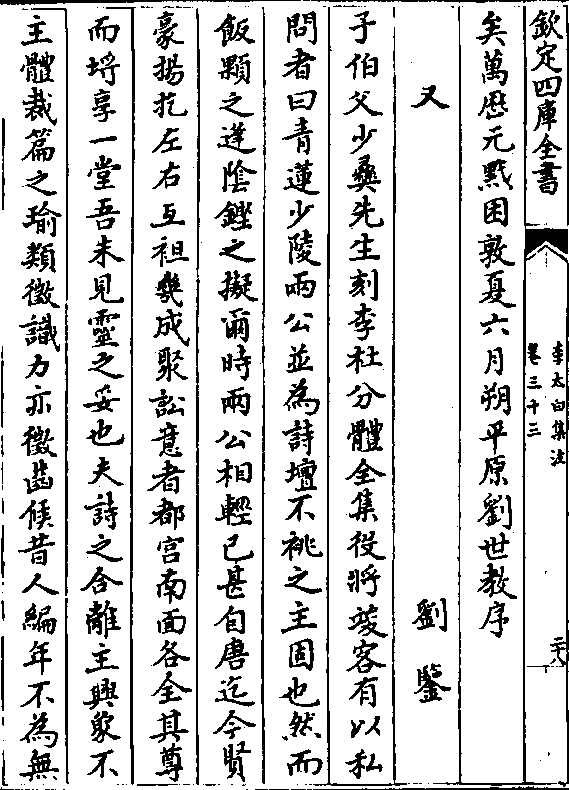 欽定四庫全書
李太白集注
卷三十三
矣萬厯元黓困敦夏六月朔平原劉世教序
又　劉鑒
子伯父少彝先生刻李杜分體全集役將竣客有以私
問者曰青蓮少陵兩公並為詩壇不祧之主固也然而
飯顆之逆陰鏗之擬爾時兩公相輕已甚自唐迄今賢
豪揚扢左右互袒幾成聚訟意者都宮南面各全其尊
而埒享一堂吾未見靈之妥也夫詩之合離主興象不
主體裁篇之瑜類徵識力亦徵齒候昔人編年不為無